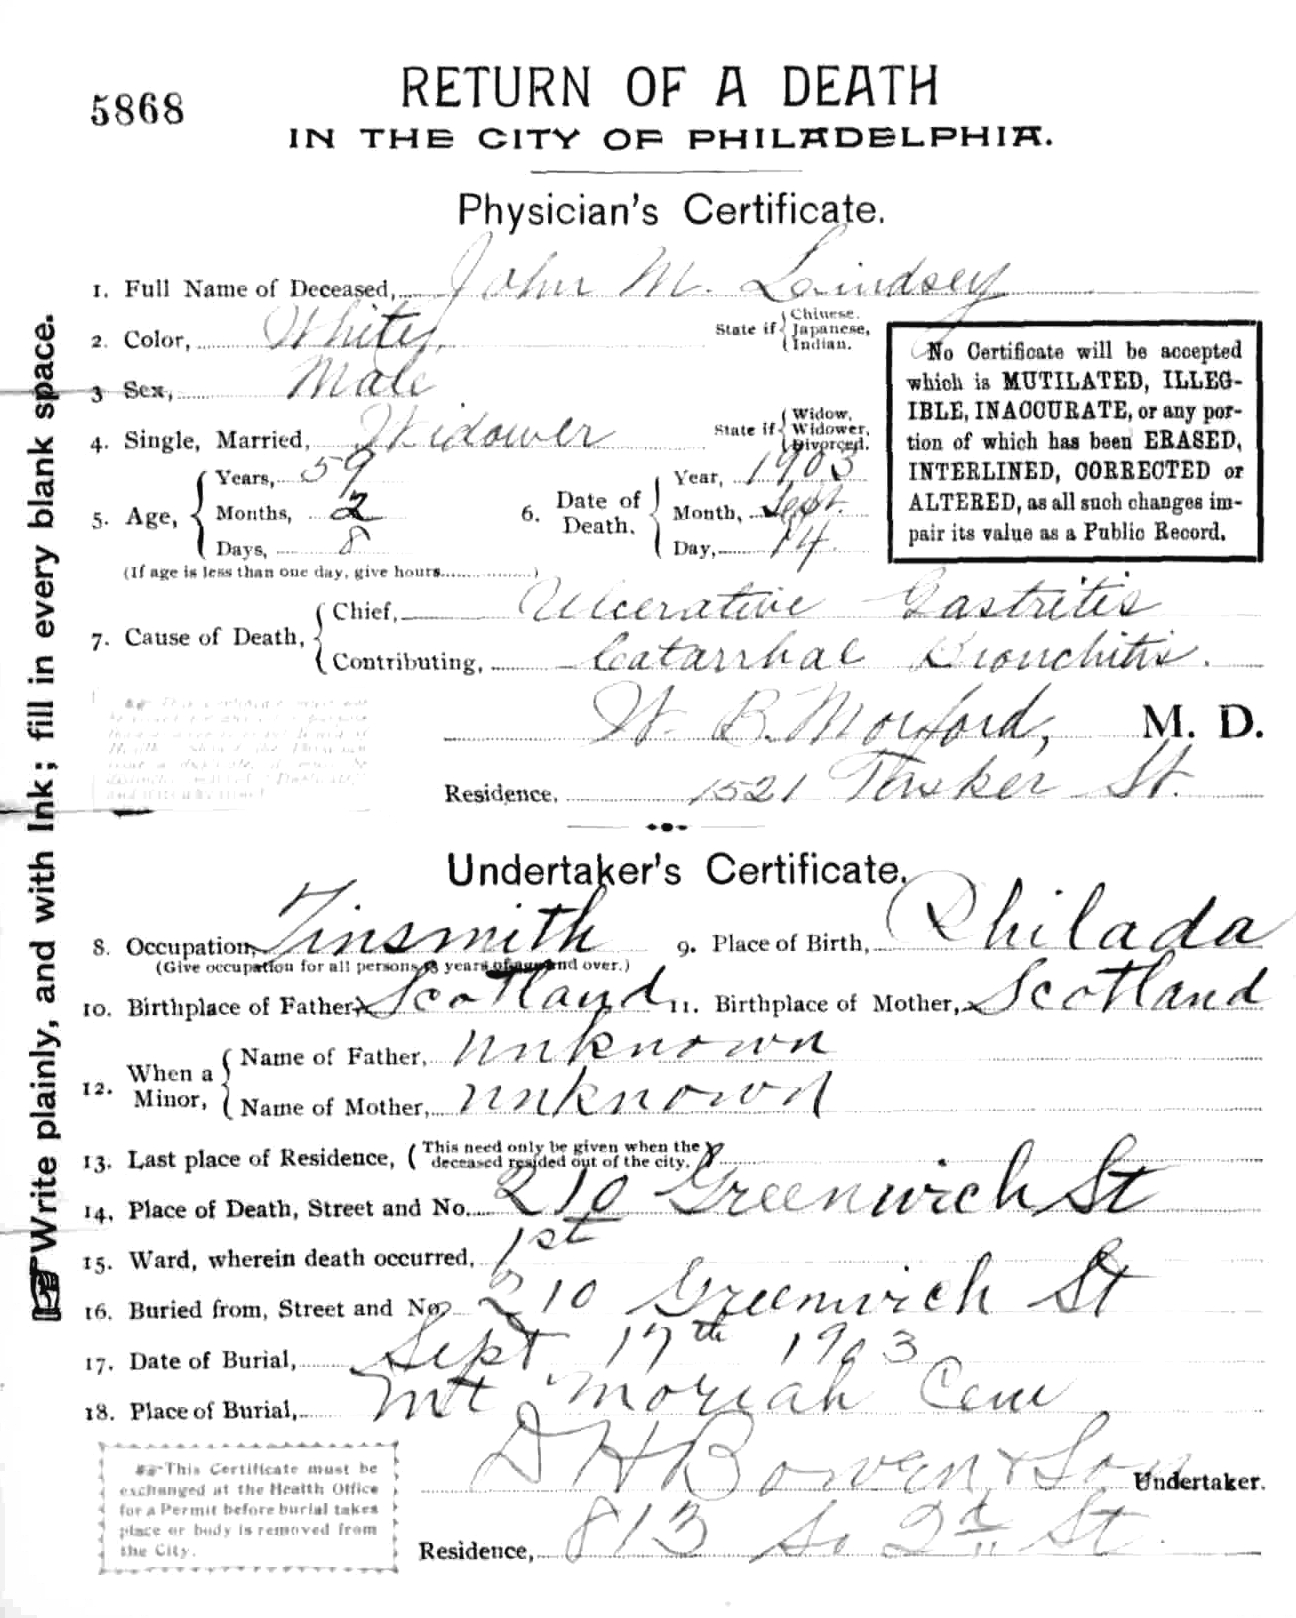 5868
RETURN OF A DEATH
IN THE CITY OF PHILADELPHIA.
Physician's Certificate.
1. Full Name of Deceased, John M. Laindsey
2. Color, White, State if { Chinese. Japanese, Indian.
3 Sex, Male
4. Single, Married, Widower State if { Widow, Widower, Divorced.
No Certificate will be accepted
which is MUTILATED, ILLEG-
IBLE, INACCURATE, or any por-
tion of which has been ERASED,
INTERLINED, CORRECTED or
ALTERED, as all such changes im-
pair its value as a Public Record.
5. Age, { Years, 59
Months, 2
Days, 8
(If age is less than one day, give hours.................)
6. Date of Death. { Year, 1903
Month, Sept.
Day, 14.
7. Cause of Death, { Chief, Ulcerative Gastritis
Contributing, Catarrhal Bronchitis.
W. B. Morford, M. D.
Residence, 1521 Tasker St.
Undertaker's Certificate.
8. Occupation, Tinsmith 9. Place of Birth, Philada
(Give occupation for all persons years of age and over.)
10. Birthplace of Father, Scotland 11. Birthplace of Mother, Scotland
12. When a Minor, { Name of Father, unknown
Name of Mother, unknown
13. Last place of Residence, (This need only be given when the deceased resided out of the city.)
14. Place of Death, Street and No. 210 Greenwich St
15. Ward, wherein death occurred, 1st
16. Buried from, Street and No. 210 Greenwich St
17. Date of Burial, Sept 17th 1903
18. Place of Burial, Mt Moriah Cem
D H Bowen & Son Undertaker.
Residence, 813 So 2d St
This Certificate must be
exchanged at the Health Office
for a Permit before burial takes
place or body is removed from
the City.
Write plainly, and with Ink; fill in every blank space.